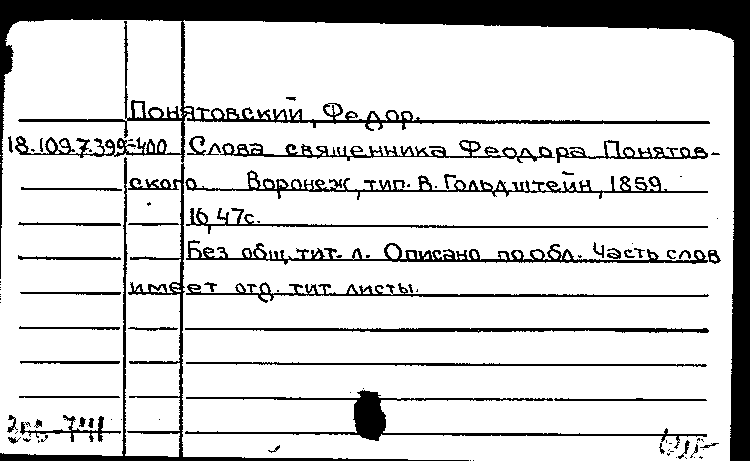 Понятовский, Федор.
18.109.7.399-400 Слова священника Феодора Понятов-
ского. Воронеж, тип. В. Гольдштейн, 1859.
16, 47с.
Без общ. тит. л. Описано по обл. Часть слов
имеет отд. тит. листы.